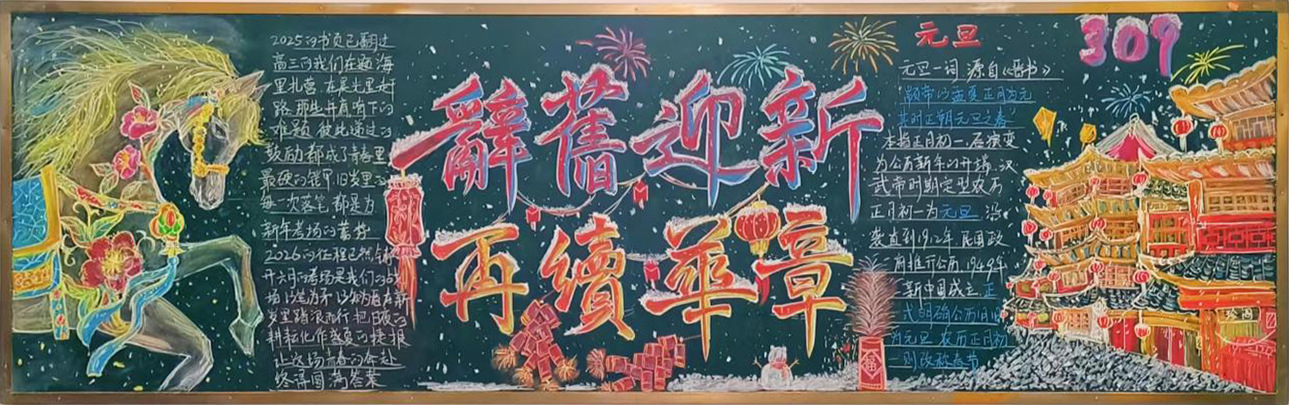 2025的书页已翻过
高三的我们在题海
里扎营 在晨光里赶
路 那些并肩啃下的
难题 彼此递过的
鼓励 都成了青春里
最硬的铠甲 旧岁里的
每一次落笔 都是为
新年考场的蓄势
2026的征程已然
六月的考场是我们的战
场 以笔为矛 以 为盾 在新
岁里踏浪而行 把日夜的
耕耘化作盛夏的捷报
让这场青春的奔赴
终得圆满答案
辭舊迎新
再續華章
福
元旦
元旦一词 源自《晋书》
颛帝以孟夏正月为元
其时正朔元旦之春
本指正月初一 后演变
为公历新年的开端 汉
武帝时期定型农历
正月初一为元旦 沿
袭直到1912年 民国政
府推行公历 1949年
新中国成立 正
式明确公历1月1日
为元旦 农历正月初
一则改称春节
309